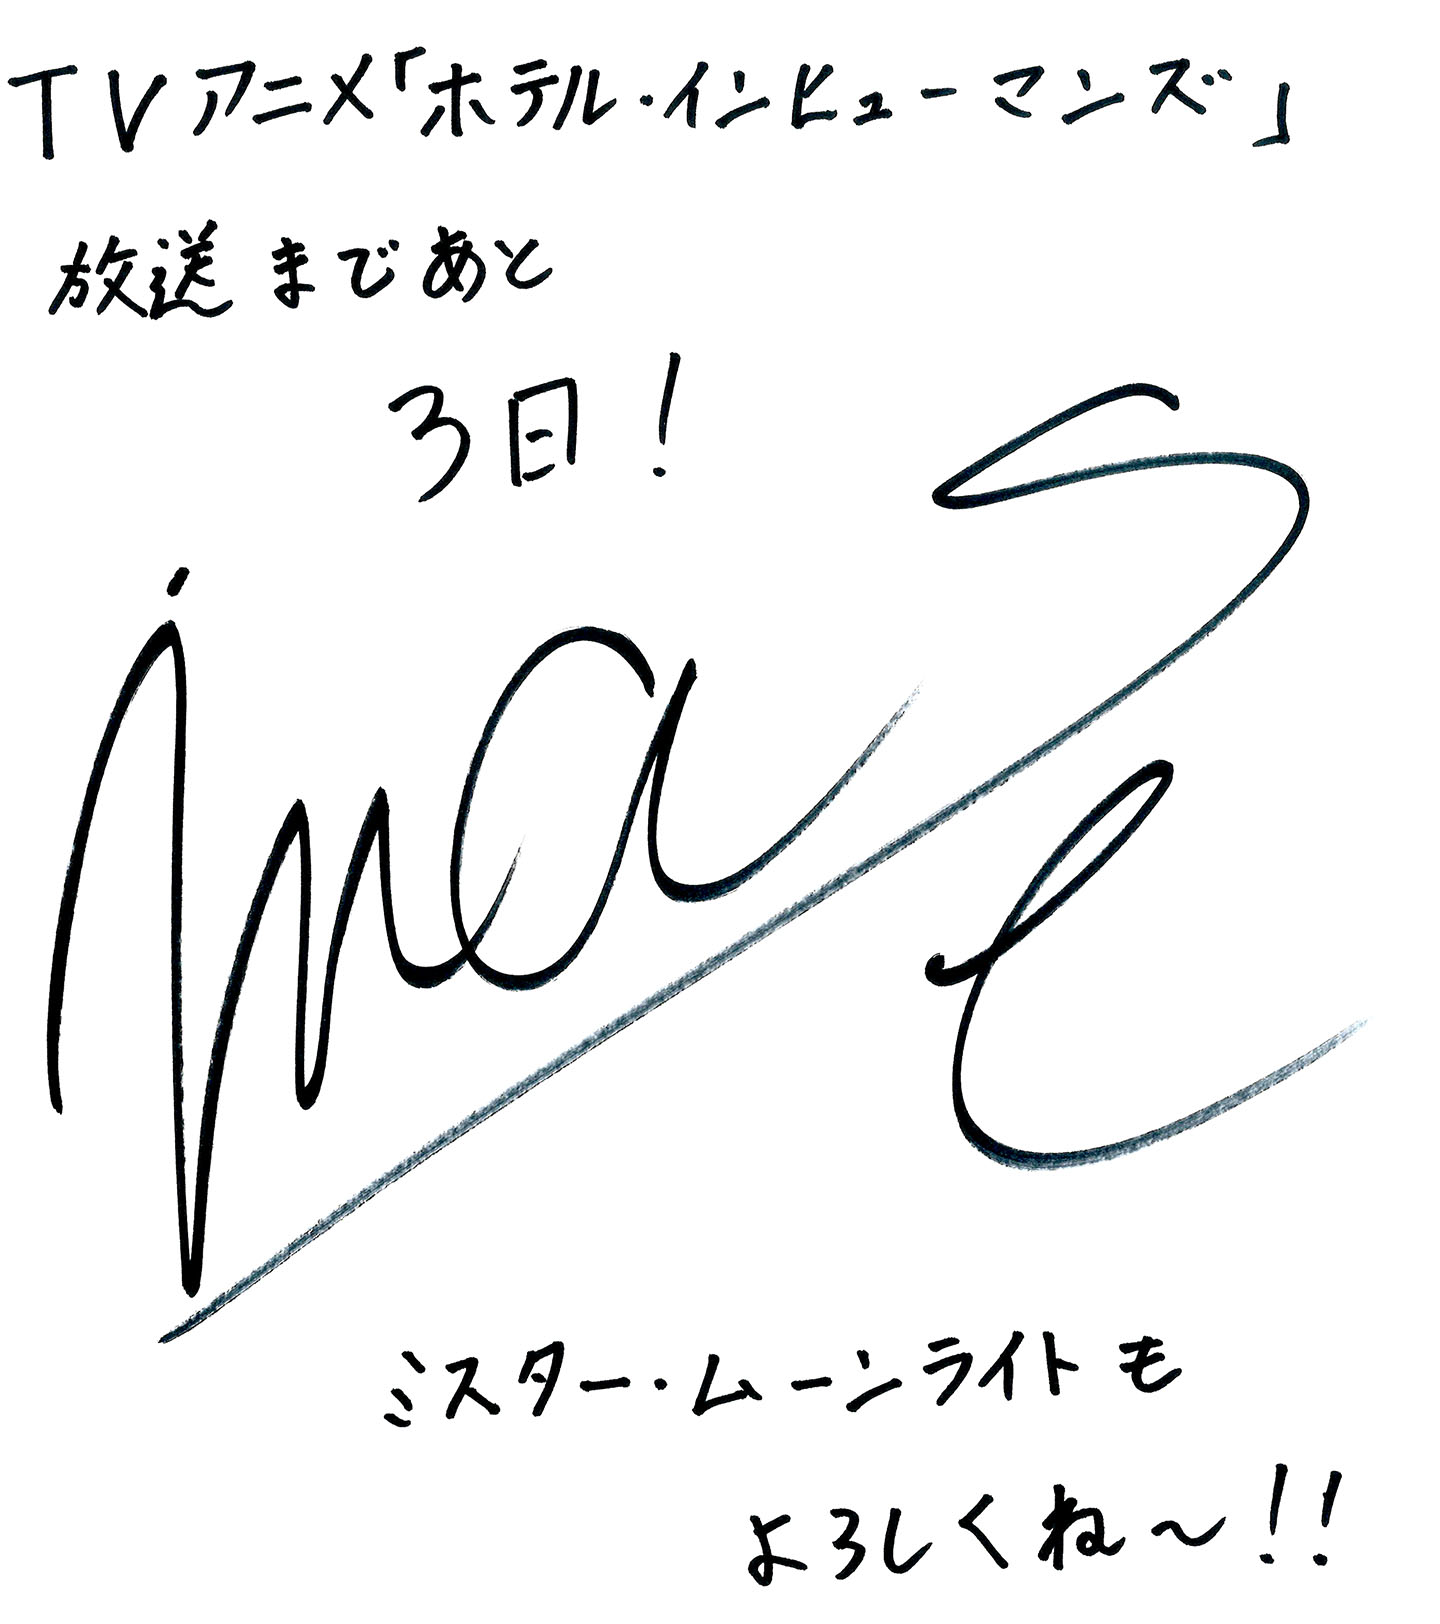 TVアニメ「ホテル・インヒューマンズ」
放送まであと
3日!
imase
ミスター・ムーンライトも
よろしくね〜!!